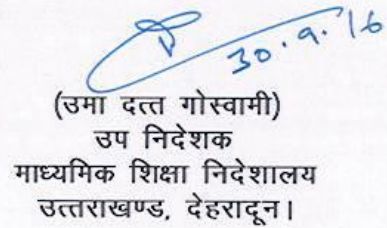 30.9.16
(उमा दत्त गोस्वामी)
उप निदेशक
माध्यमिक शिक्षा निदेशालय
उत्तराखण्ड, देहरादून।